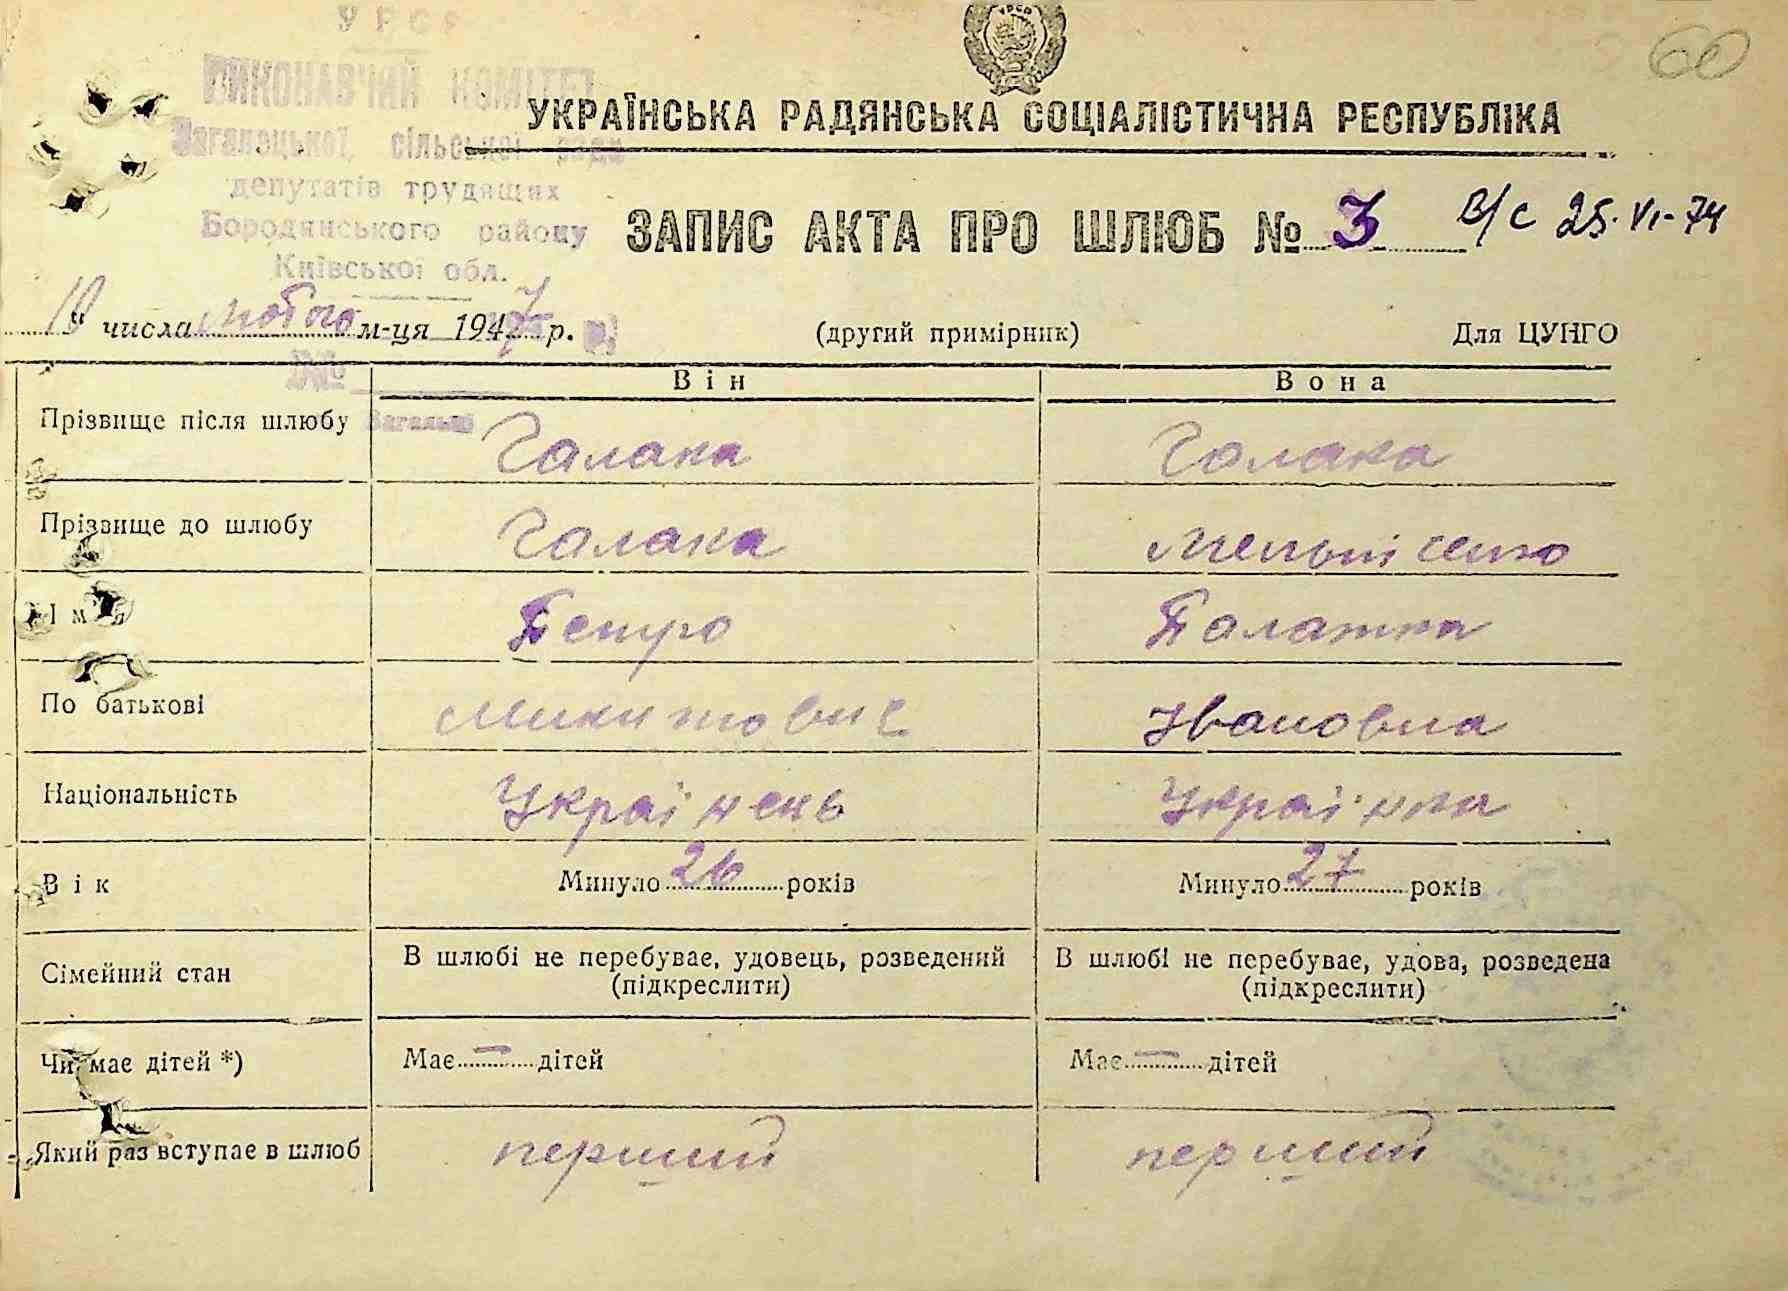 УРСР
60
ВИКОНАВЧИЙ КОМІТЕТ
УКРАЇНСЬКА РАДЯНСЬКА СОЦІАЛІСТИЧНА РЕСПУБЛІКА
Загалецької, сільської ради
депутатів трудящих
Бородянського району
Київської обл.
ЗАПИС АКТА ПРО ШЛЮБ № 3 в/с 25-VI-74
10 " числа лютого м-ця 1947 р.
(другий примірник)
Для ЦУНГО
№
Він
Вона
Прізвище після шлюбу Галака Галака
Прізвище до шлюбу Галака
Ім'я Петро Палажка
По батькові Микитович Івановна
Національність Українець Українка
Вік Минуло 26 років Минуло 27 років
Сімейний стан В шлюбі не перебуває, удовець, розведений В шлюбі не перебуває, удова, розведена
(підкреслити) (підкреслити)
Чи має дітей *) Має — дітей Має — дітей
Який раз вступає в шлюб перший перший